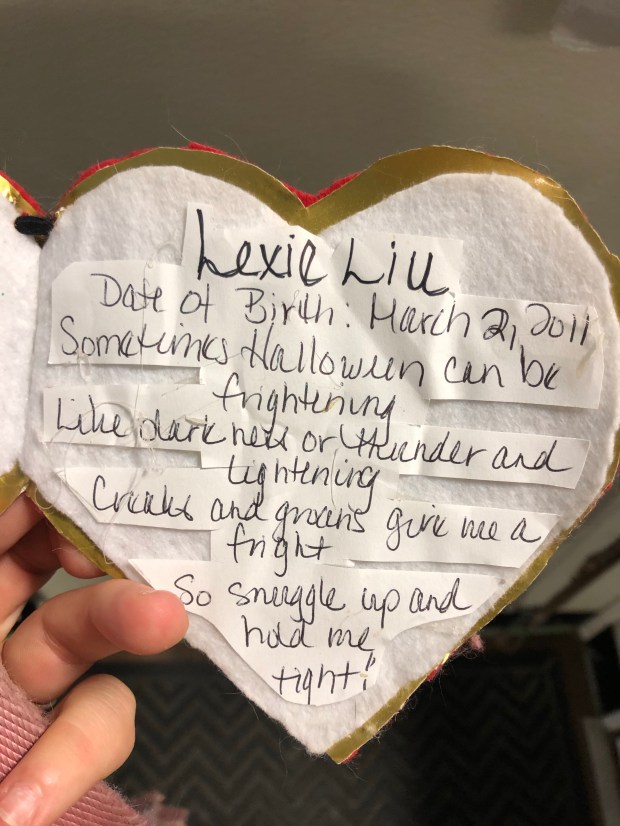 Lexie Liu
Date of Birth: March 2, 2011
Sometimes Halloween can be
frightening
Like darkness or thunder and
lightening
Creaks and groans give me a
fright
So snuggle up and
hold me
tight!